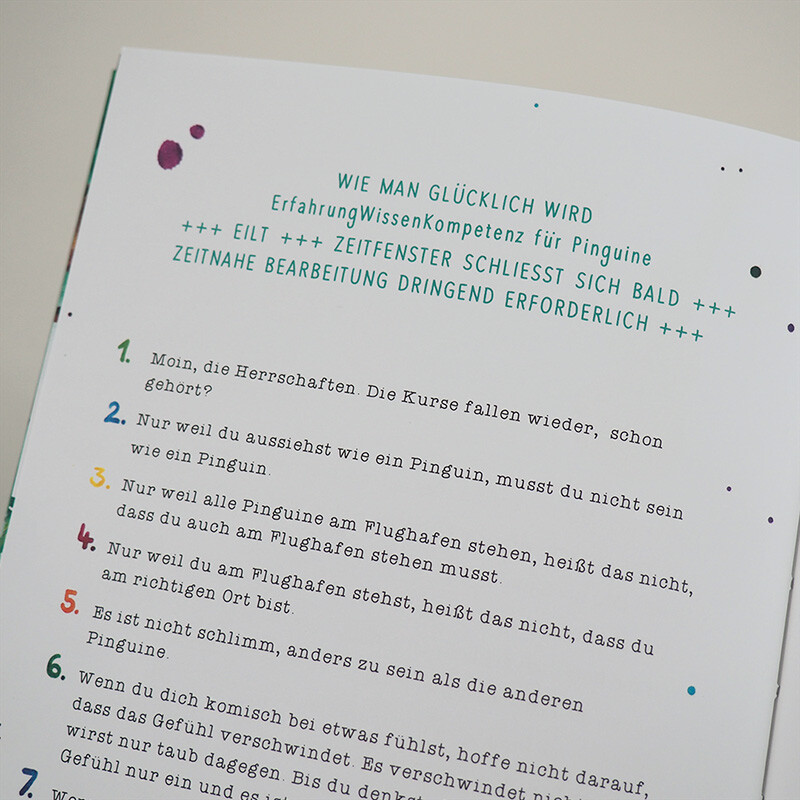 WIE MAN GLÜCKLICH WIRD
ErfahrungWissenKompetenz für Pinguine
+++ EILT +++ ZEITFENSTER SCHLIESST SICH BALD +++
ZEITNAHE BEARBEITUNG DRINGEND ERFORDERLICH +++
1. Moin, die Herrschaften. Die Kurse fallen wieder, schon
gehört?
2. Nur weil du aussiehst wie ein Pinguin, musst du nicht sein
wie ein Pinguin.
3. Nur weil alle Pinguine am Flughafen stehen, heißt das nicht,
dass du auch am Flughafen stehen musst.
4. Nur weil du am Flughafen stehst, heißt das nicht, dass du
am richtigen Ort bist.
5. Es ist nicht schlimm, anders zu sein als die anderen
Pinguine.
6. Wenn du dich komisch bei etwas fühlst, hoffe nicht darauf,
dass das Gefühl verschwindet. Es verschwindet
wirst nur taub dagegen. Bis du
Gefühl nur ein und es
7.